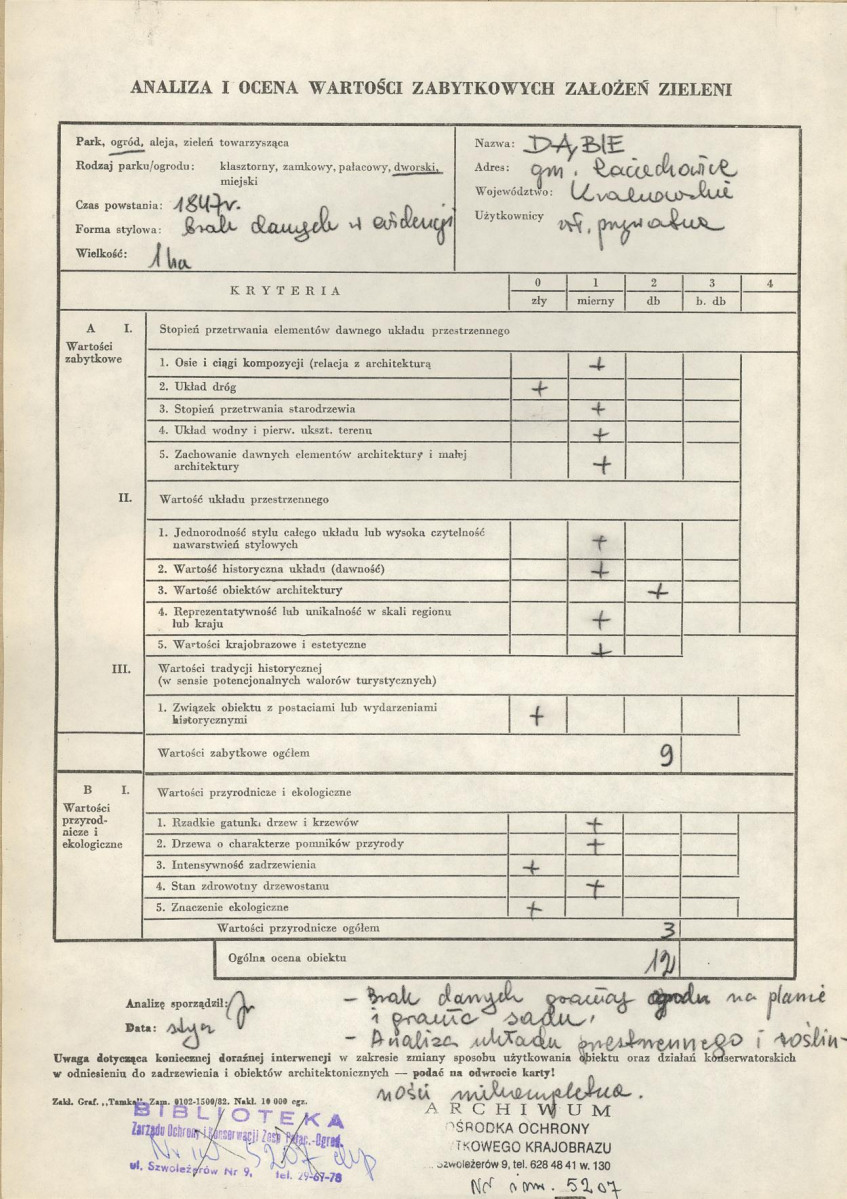 ANALIZA I OCENA WARTOŚCI ZABYTKOWYCH ZAŁOŻEŃ ZIELENI
Park, ogród, aleja, zieleń towarzysząca
Rodzaj parku/ogrodu: klasztorny, zamkowy, pałacowy, dworski,
miejski
Czas powstania: 1847r.
Forma stylowa: brak danych w ewidencji
Wielkość: 1 ha
Nazwa: DĄBIE
Adres: gm. Raciechowice
Województwo: Krakowskie
Użytkownicy wł. prywatna
KRYTERIA
0 1 2 3 4
zły mierny db b. db
A I. Stopień przetrwania elementów dawnego układu przestrzennego
Wartości
zabytkowe
1. Osie i ciągi kompozycji (relacja z architekturą +
2. Układ dróg +
3. Stopień przetrwania starodrzewia +
4. Układ wodny i pierw. ukszt. terenu +
5. Zachowanie dawnych elementów architektury i małej
architektury +
II. Wartość układu przestrzennego
1. Jednorodność stylu całego układu lub wysoka czytelność
nawarstwień stylowych +
2. Wartość historyczna układu (dawność) +
3. Wartość obiektów architektury +
4. Reprezentatywność lub unikalność w skali regionu
lub kraju +
5. Wartości krajobrazowe i estetyczne +
III. Wartości tradycji historycznej
(w sensie potencjonalnych walorów turystycznych)
1. Związek obiektu z postaciami lub wydarzeniami
historycznymi +
Wartości zabytkowe ogółem 9
B I. Wartości przyrodnicze i ekologiczne
Wartości
przyrod-
nicze i
ekologiczne
1. Rzadkie gatunki drzew i krzewów +
2. Drzewa o charakterze pomników przyrody +
3. Intensywność zadrzewienia +
4. Stan zdrowotny drzewostanu +
5. Znaczenie ekologiczne +
Wartości przyrodnicze ogółem 3
Ogólna ocena obiektu 12
Analizę sporządził:
Data:
- Brak danych granicy ogrodu na planie
i granic sadu,
- Analiza układu przestrzennego i roślin-
ności niekompletna.
Uwaga dotycząca koniecznej doraźnej interwencji w zakresie zmiany sposobu użytkowania obiektu oraz działań konserwatorskich
w odniesieniu do zadrzewienia i obiektów architektonicznych — podać na odwrocie karty!
Zakł. Graf. „Tamka". Zam. 0102-1500/82. Nakł. 10 000 egz.
BIBLIOTEKA
Zarządu Ochrony i Konserwacji Zesp. Pałac.-Ogrod.
Nr 5207
ul. Szwoleżerów Nr 9, tel. 29-67-78
ARCHIWUM
OŚRODKA OCHRONY
TKOWEGO KRAJOBRAZU
Szwoleżerów 9, tel. 628 48 41 w. 130
Nr inw. 5207